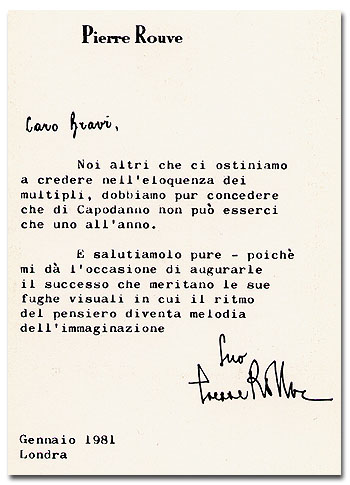 Pierre Rouve
Caro Bravi,
Noi altri che ci ostiniamo
a credere nell'eloquenza dei
multipli, dobbiamo pur concedere
che di Capodanno non può esserci
che uno all'anno.
E salutiamolo pure - poichè
mi dà l'occasione di augurarle
il successo che meritano le sue
fughe visuali in cui il ritmo
del pensiero diventa melodia
dell'immaginazione
Suo
Pierre Rouve
Gennaio 1981
Londra